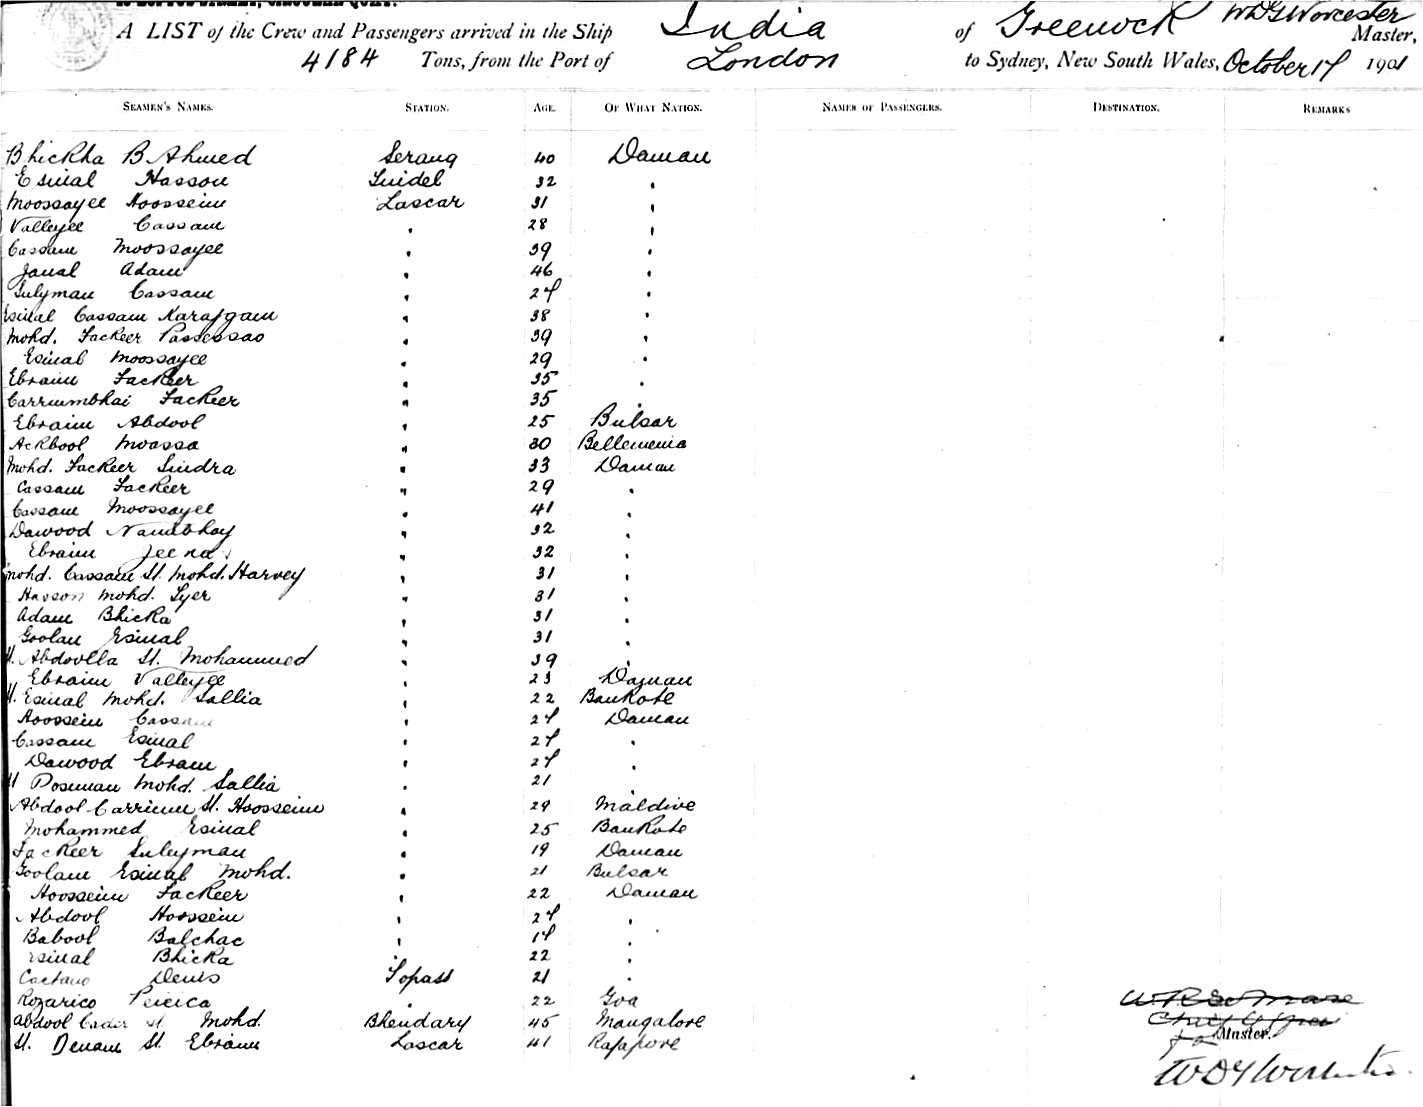 A LIST of the Crew and Passengers arrived in the Ship India of Greenock W D G Worcester Master,
4184 Tons, from the Port of London to Sydney, New South Wales, October 17 1901
SEAMEN'S NAMES. STATION. AGE. OF WHAT NATION. NAMES OF PASSENGERS. DESTINATION. REMARKS
Bhickha B Ahmed Serang 40 Daman
Esmal Hasson Tindel 32 "
Moossajee Hoossein Lascar 31 "
Valleyjee Cassam " 28 "
Cassam Moossajee " 39 "
Jamal Adam " 46 "
Sulyman Cassam " 27 "
Esmal Cassam " 38 "
Mohd. Fackeer " 39 "
Esmal Moossajee " 29 "
Ebraim Fackeer " 35 "
Carrumbhai Fackeer " 35 "
Ebraim Abdool " 25 Bulsar
Ackbool Moassa " 30
Mohd. Fackeer " 33 Daman
Cassam Fackeer " 29 "
Cassam Moossajee " 41 "
Dawood " 32 "
Ebraim Jeena " 32 "
Mohd. Cassam St. Mohd. Harvey " 31 "
Hasson Mohd. Syer " 31 "
Adam Bhicka " 31 "
Goolam Esmal " 31 "
Abdoolla St. Mohammed " 39 "
Ebraim Valleyjee " 23 Daman
Esmal Mohd. Sallia " 22 Bankote
Hoossein Cassam " 27 Daman
Cassam Esmal " 27 "
Dawood Ebram " 27 "
Mohd. Sallia " 21 "
Abdool Carrimm St. Hoossein " 29 Maldive
Mohammed Esmal " 25 Bankote
Fackeer Suleyman " 19 Daman
Goolam Esmal Mohd. " 21 Bulsar
Hoossein Fackeer " 22 Daman
Abdool Hoossein " 27 "
Babool Balchac " 17 "
Esmal Bhicka " 22 "
Caetano Denis Topass 21 "
Rozarico Pereica " 22 Goa
Abdool Cader St. Mohd. Bhendary 45 Mangalore
St. Denam St. Ebraim Lascar 41 Rajapore
Master.
W D G Worcester